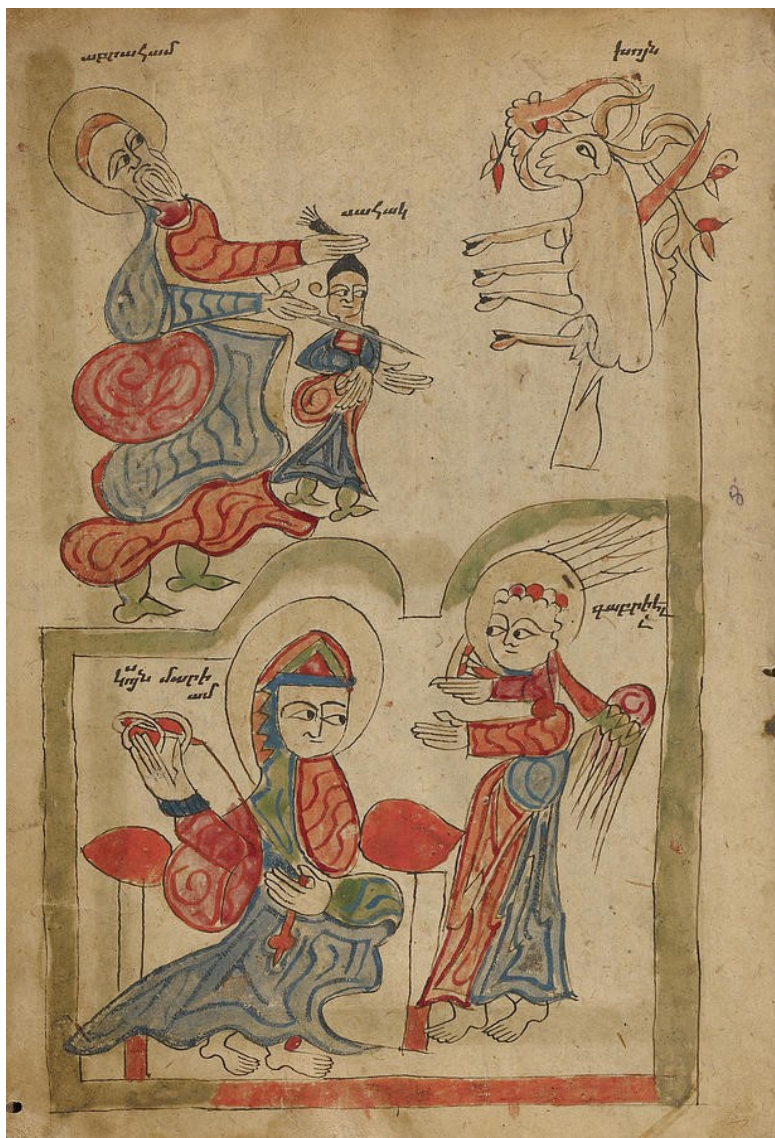 աբրահամ
խոյն
սահակ
գաբրիէլ
մարի
ամ